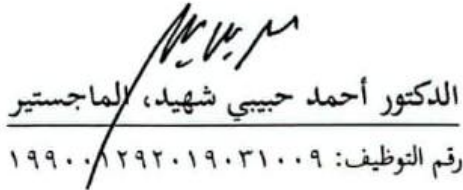 الدكتور أحمد حبيبي شهيد، الماجستير
رقم التوظيف: ١٩٩٠٠١٢٩٢٠١٩٠٣١٠٠٩